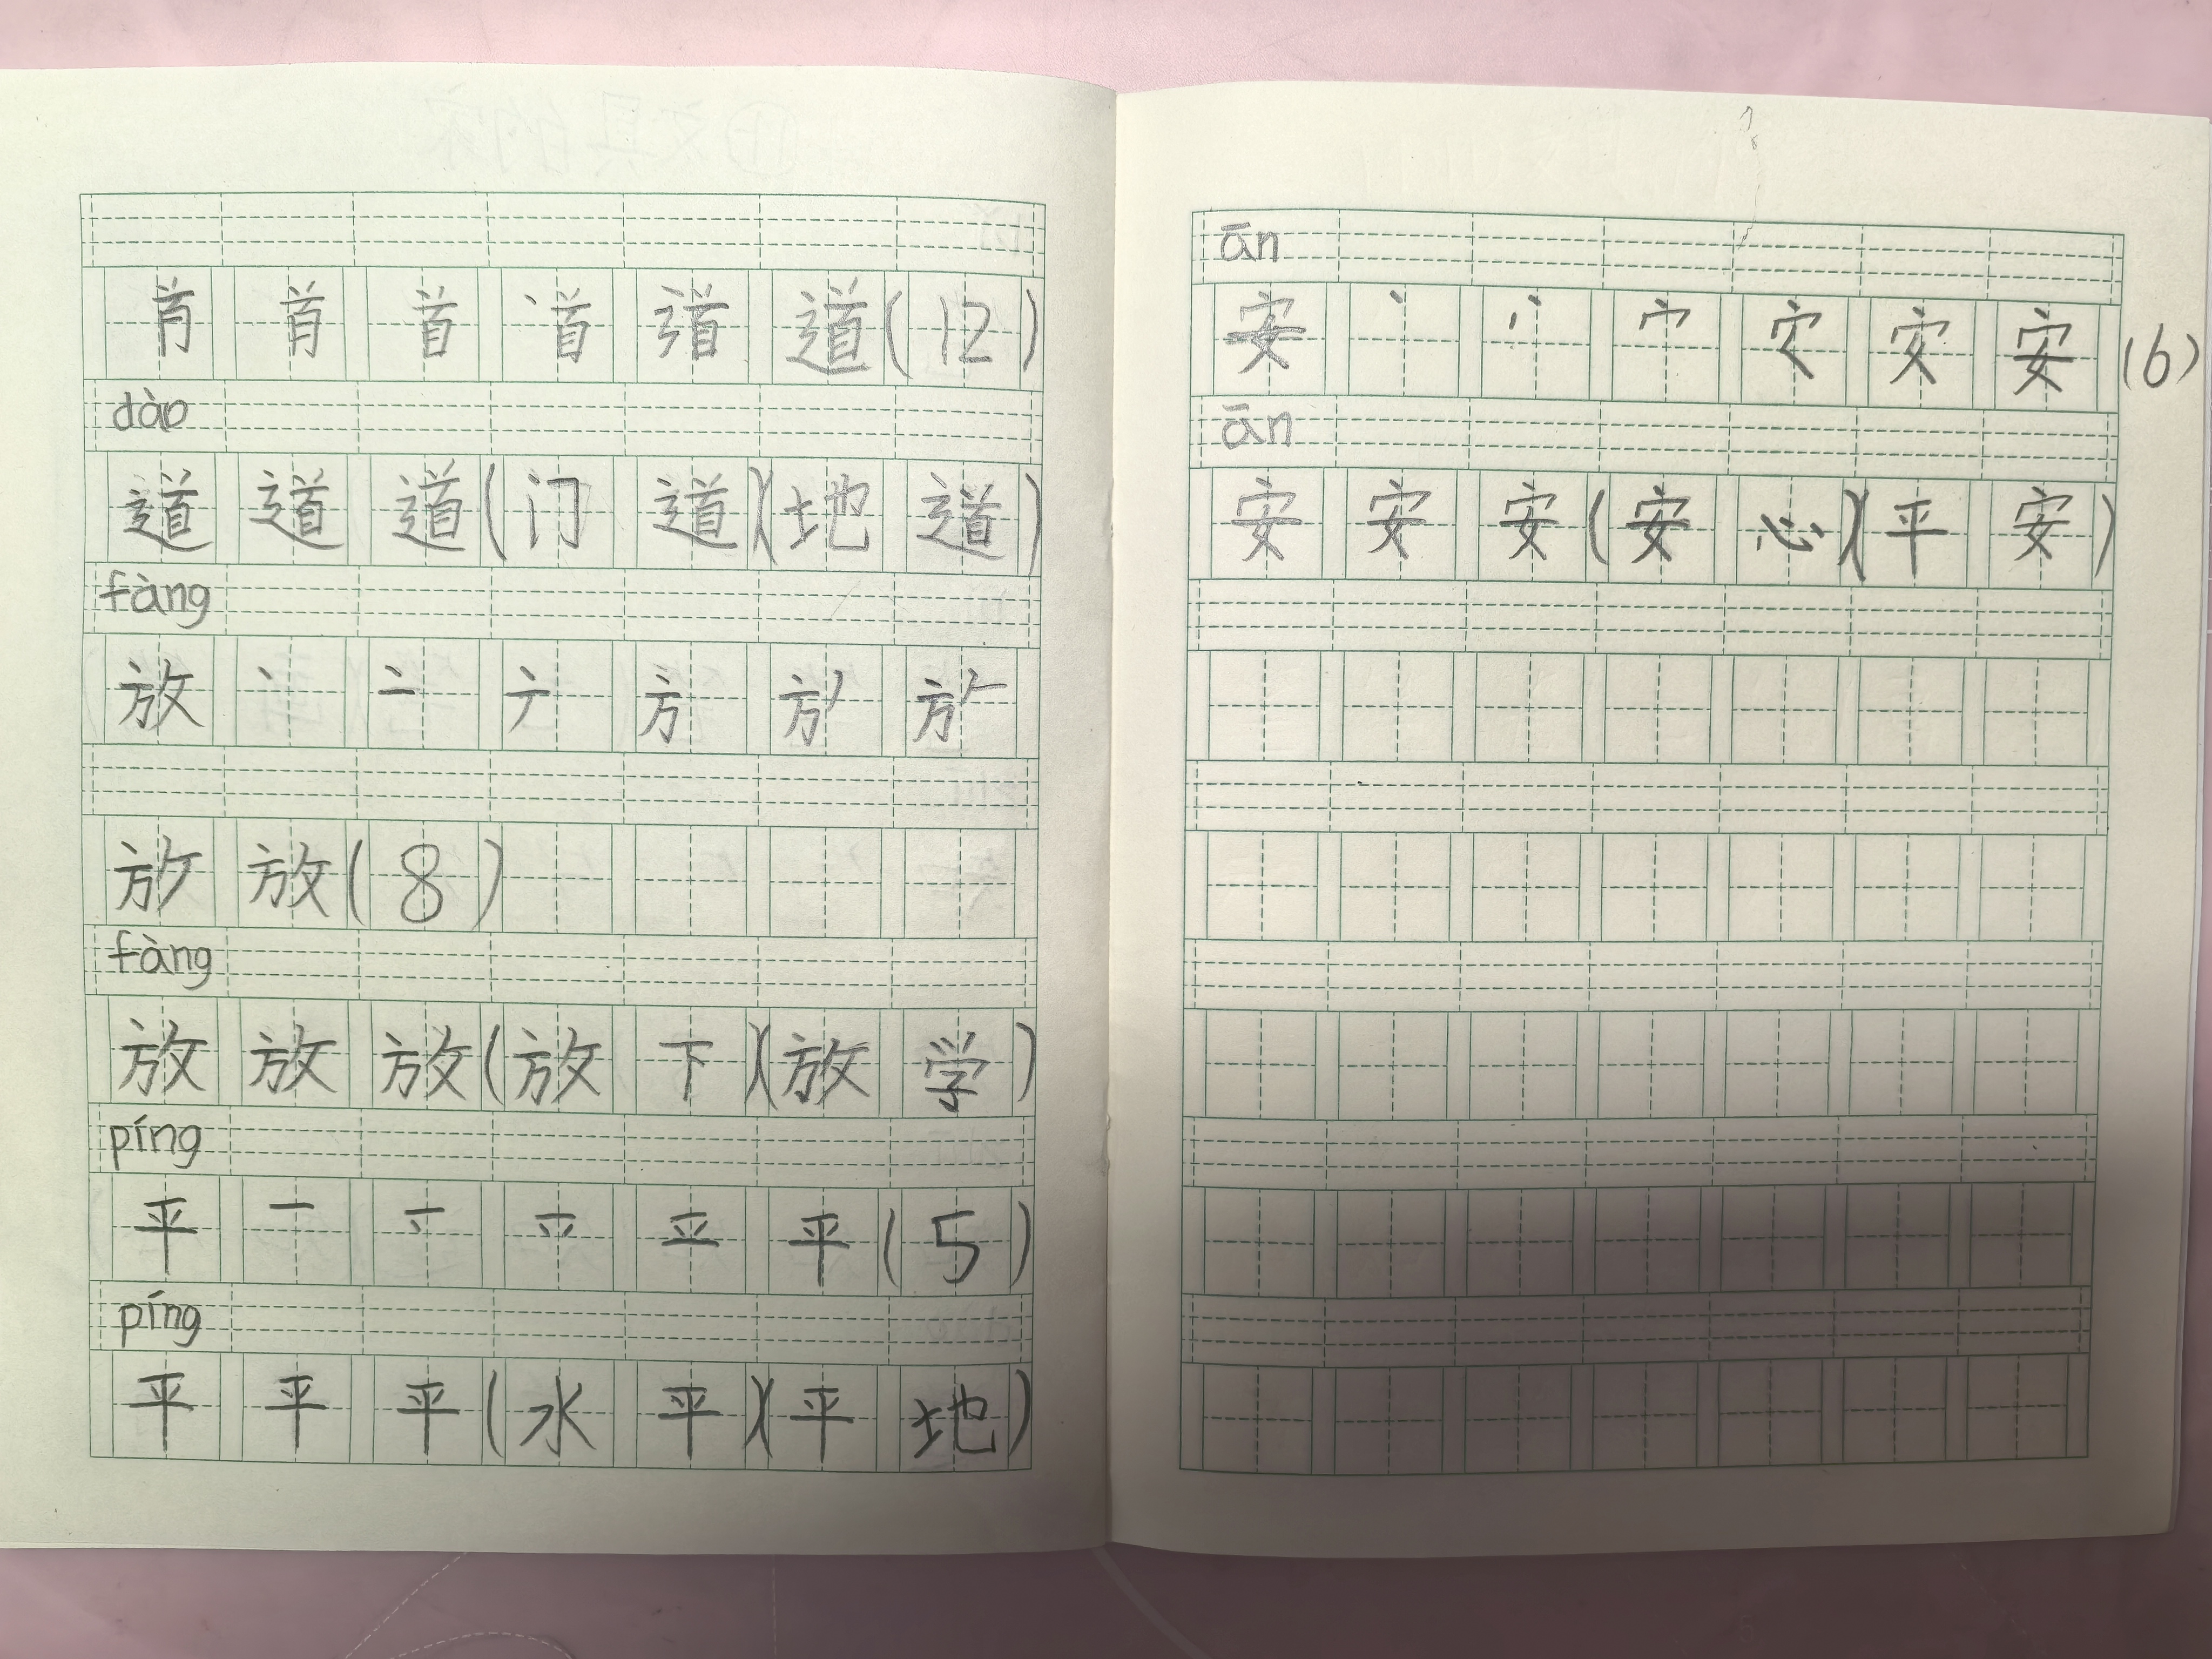 道(12)
dào
道 道 道(门 道)(地 道)
fàng
放 丶 亠 方
放(8)
fàng
放 放 放(放 下)(放 学)
píng
平 一 平(5)
píng
平 平 平(水 平)(平 地)
ān
安 丶 宀 安(6)
ān
安 安 安(安 心)(平 安)